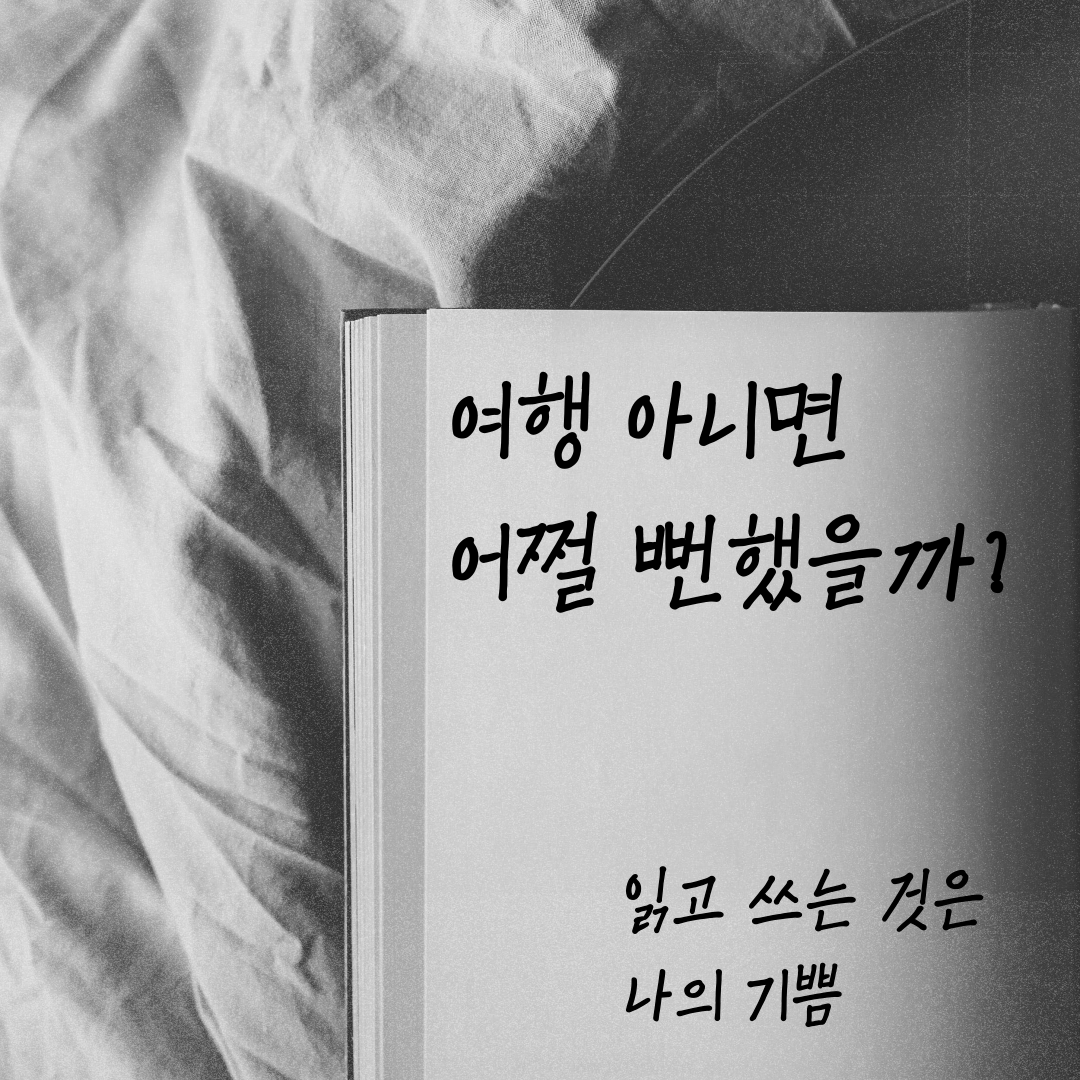 여행 아니면
어쩔 뻔했을까?
읽고 쓰는 것은
나의 기쁨